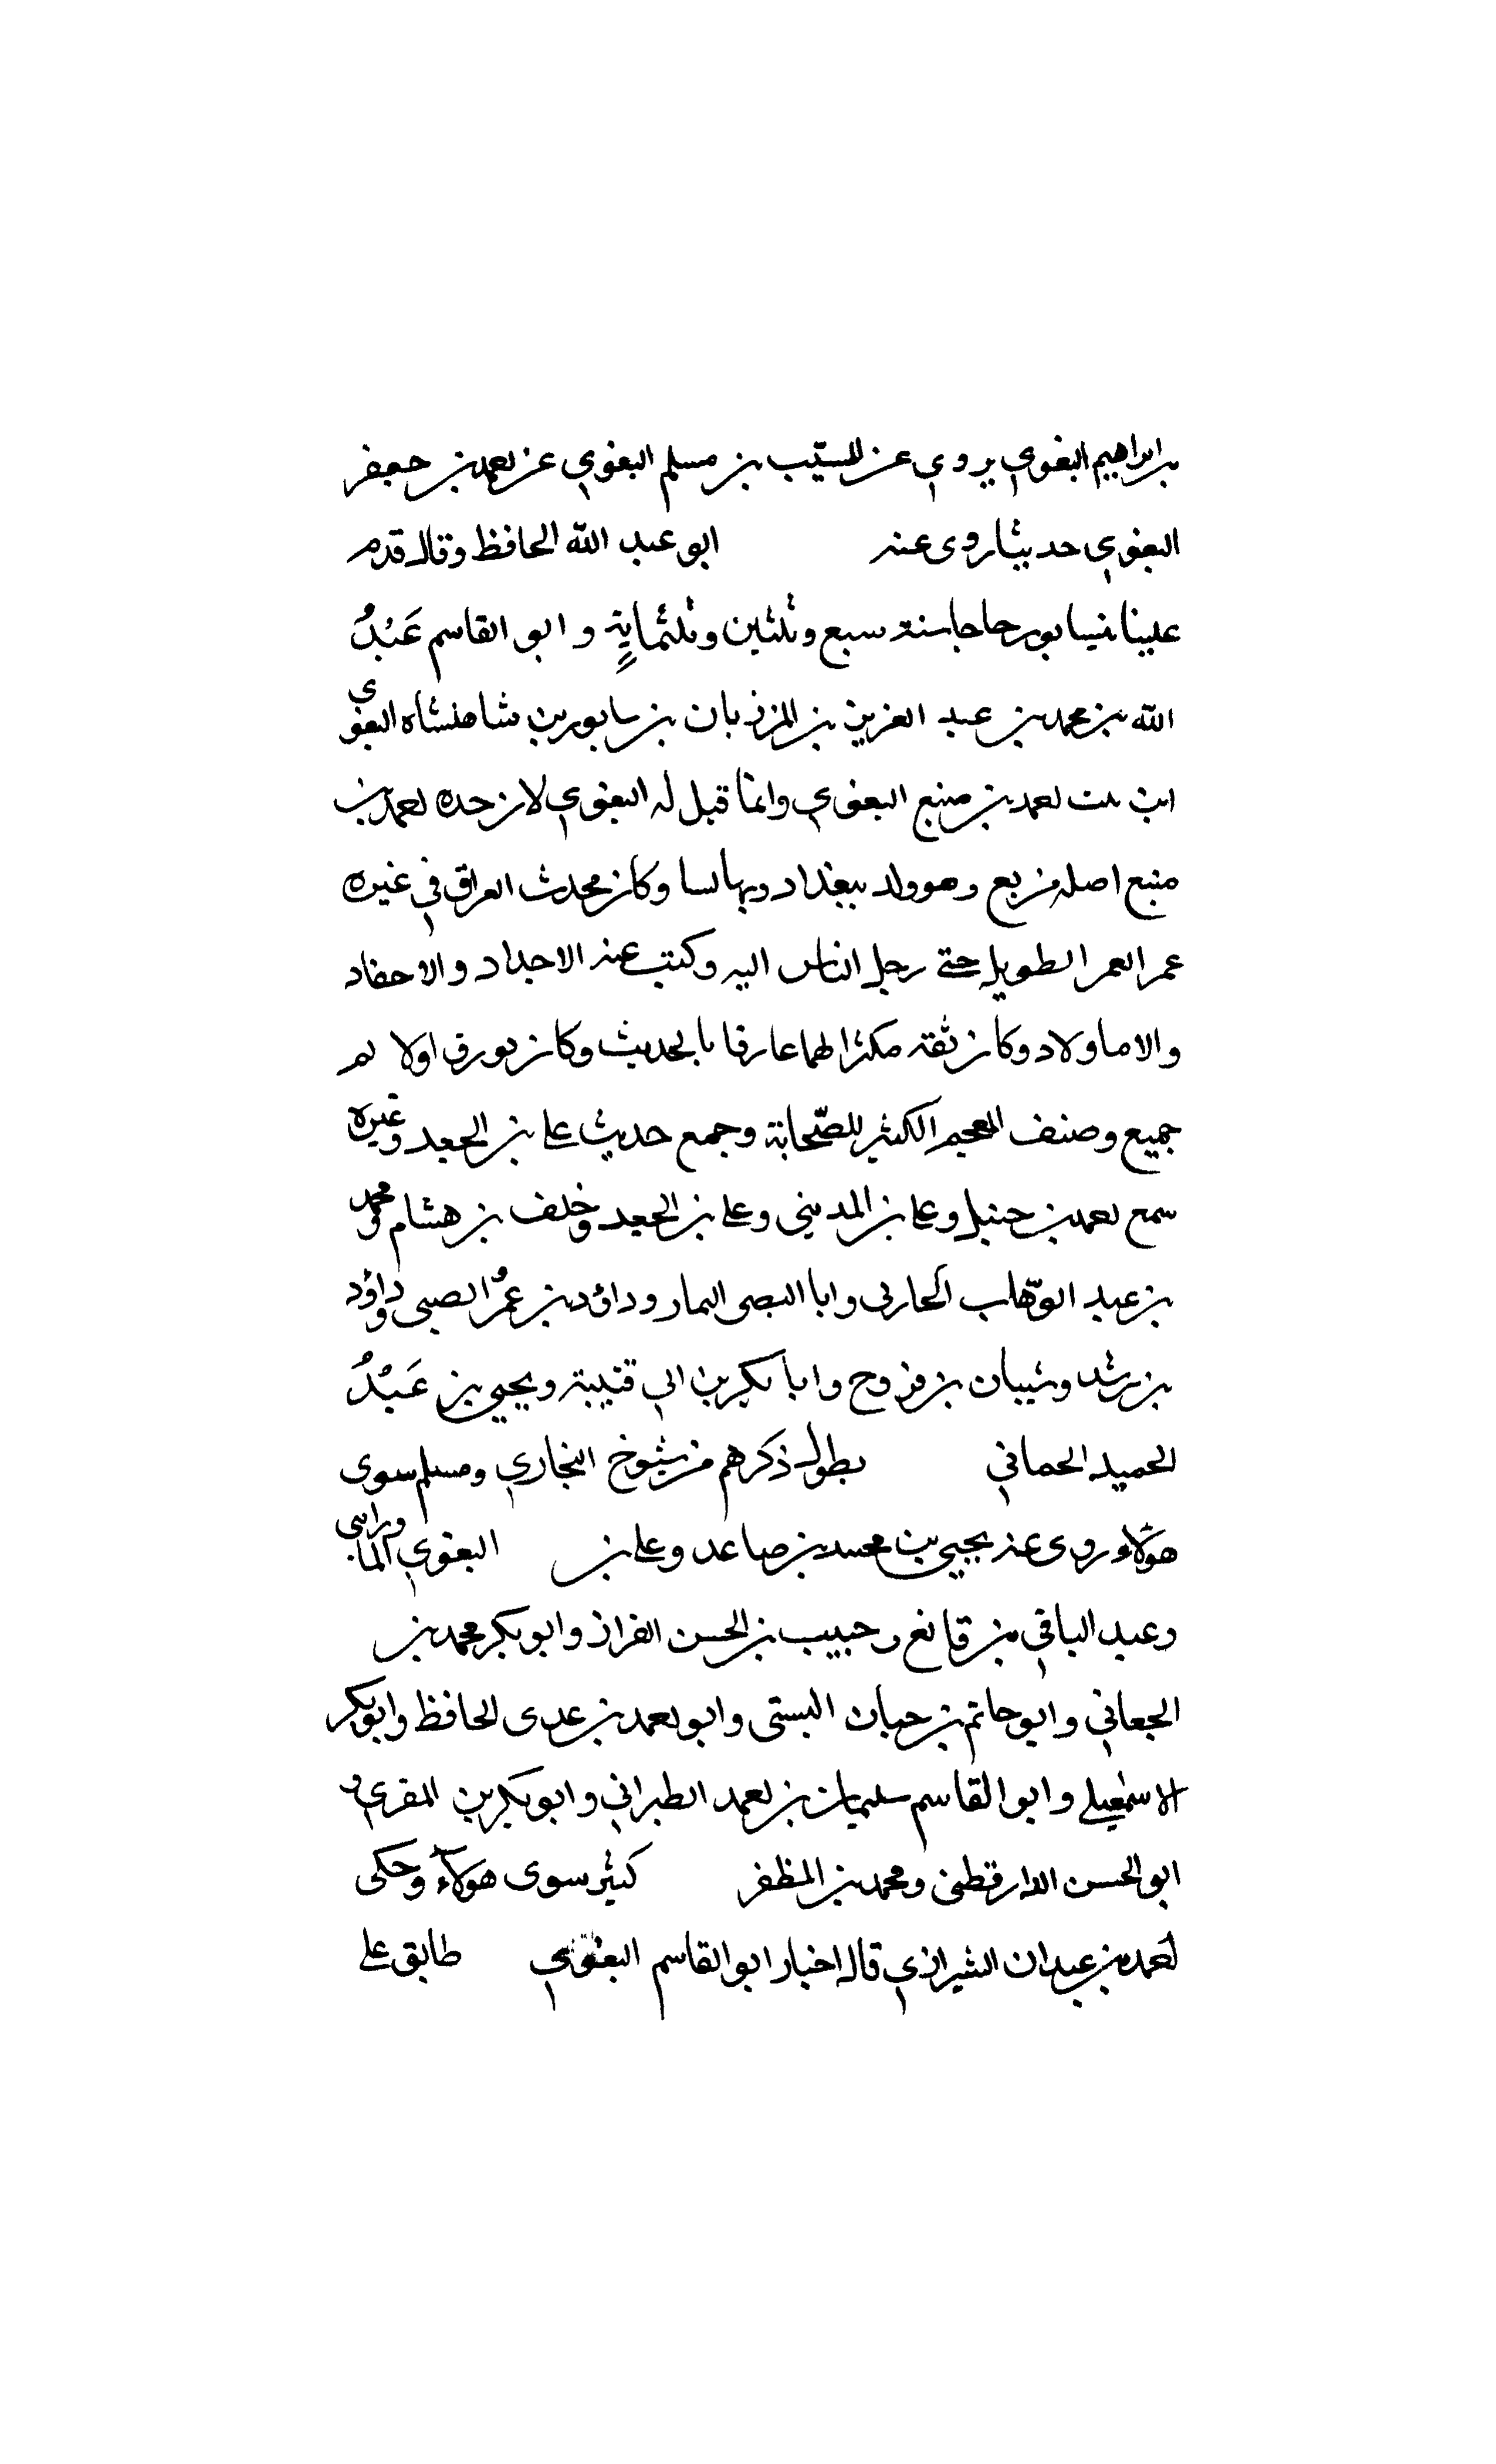 بن ابراهيم البغوي يروي عن المسيّب بن مسلم البغوي عن احمد بن جعفر
البغوي حديثا روى عنه ابو عبد الله الحافظ وقال قدم
علينا نيسابور حاجا سنة سبع وثلثين وثلثماية و ابو القاسم عَبْدُ
الله بن محمد بن عبد العزيز بن المرزبان بن سابور بن شاهنشاه البغوي
ابن بنت احمد بن منيع البغوي وانما قيل له البغوي لان جده احمد بن
منيع اصله من بغ وهو ولد ببغداد وبها نسا وكان محدث العراق في عصره
عمر العمر الطويل حتى رحل الناس اليه وكتب عنه الاجداد والاحفاد
والاما ولاد وكان ثقة مكثرا فهما عارفا بالحديث وكان يورق اولا ثم
جميع وصنف المعجم الكبير للصّحابة وجمع حديث على بن الجعد وغيره
سمع احمد بن حنبل وعلى بن المديني وعلى بن الجعد وخلف بن هشام ومحمد
بن عبد الوّهاب الحارثى وابا النصر التمار وداؤد بن عمرُ الضبى وداؤد
بن رشد وشيبان بن فروح وابا بكر بن ابي قتيبة ويحيى بن عَبْدُ
الحميد الحماني يطول ذكرهم من شيوخ البخاري ومسلم سوى
هؤلاء وروى عنه يحيى بن محمد بن صاعد وعلى بن البغوي
وعبد الباقي بن قانع وحبيب بن الحسن القزاز وابو بكر محمد بن
الجعاني وابو حاتم بن حبان البستى وابو احمد بن عدى الحافظ وابو بكر
الاسمعيلي وابو القاسم سليمان بن احمد الطبراني وابو بكر بن المقري و
ابو الحسن الدارقطنى ومحمد بن المظفر كثير سوى هؤلآء وحكى
احمد بن عبدان الشيرازي قال اختار ابو القاسم البغوي طابق على